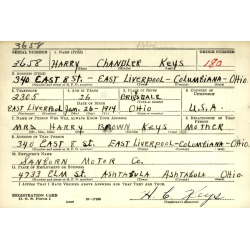 3658
SERIAL NUMBER 1. NAME (Print) ORDER NUMBER
3658 HARRY CHANDLER KEYS 180
2. ADDRESS (Print)
340 EAST 8 St. - EAST LIVERPOOL - COLUMBIANA - OHIO.
3. TELEPHONE 4. AGE IN YEARS 5. PLACE OF BIRTH 6. COUNTRY OF CITIZENSHIP
2305 26
EAST LIVERPOOL JAN. 26-1914 OHIO U.S.A.
7. NAME OF PERSON WHO WILL ALWAYS KNOW YOUR ADDRESS 8. RELATIONSHIP OF THAT PERSON
MRS HARRY BROWN KEYS MOTHER
9. ADDRESS OF THAT PERSON
340 EAST 8 St. EAST LIVERPOOL - COLUMBIANA - OHIO
10. EMPLOYER'S NAME
SANBORN MOTOR Co.
11. PLACE OF EMPLOYMENT OR BUSINESS
4733 ELM ST ASHTABULA ASHTABULA OHIO.
I AFFIRM THAT I HAVE VERIFIED ABOVE ANSWERS AND THAT THEY ARE TRUE.
REGISTRATION CARD
D. S. S. Form 1 H. C. Keys